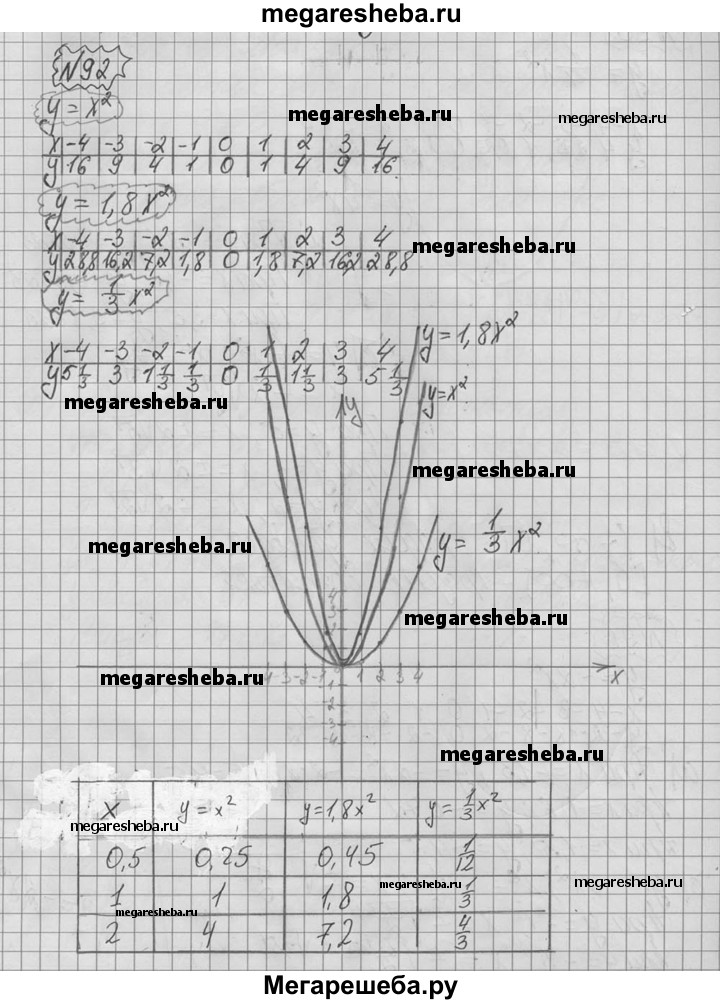 megaresheba.ru
N92
y = x²
megaresheba.ru
megaresheba.ru
x -4 -3 -2 -1 0 1 2 3 4
y 16 9 4 1 0 1 4 9 16
y = 1,8x²
x -4 -3 -2 -1 0 1 2 3 4
megaresheba.ru
y 28,8 16,2 7,2 1,8 0 1,8 7,2 16,2 28,8
y = 1/3 x²
y = 1,8x²
x -4 -3 -2 -1 0 1 2 3 4
y 5 1/3 3 1 1/3 1/3 0 1/3 1 1/3 3 5 1/3
y = x²
megaresheba.ru
y
megaresheba.ru
y = 1/3 x²
megaresheba.ru
megaresheba.ru
megaresheba.ru
-4 -3 -2 -1 1 2 3 4 x
-1
-2
-3
-4
megaresheba.ru
x y = x² y = 1,8x² y = 1/3 x²
megaresheba.ru
0,5 0,25 0,45 1/12
megaresheba.ru
megaresheba.ru
1 1 1,8 1/3
megaresheba.ru
2 4 7,2 4/3
Мегарешеба.ру